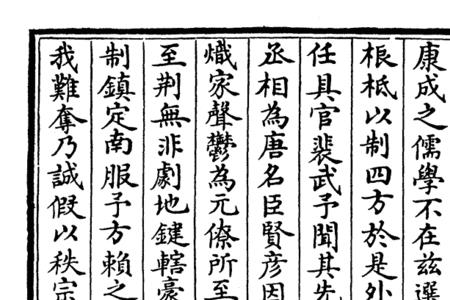 康成之儒學不在茲選
根柢以制四方於是外
任具官裴武予聞其先
丞相為唐名臣賢彦因
熾家聲鬱為元僚所至
至荆無非劇地鍵轄豪
制鎮定南服予方賴之
我難奪乃誠假以秩宗